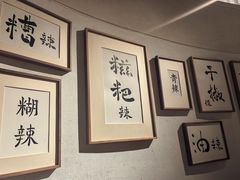 糟辣
糊辣
糍粑辣
青辣
干椒
油辣